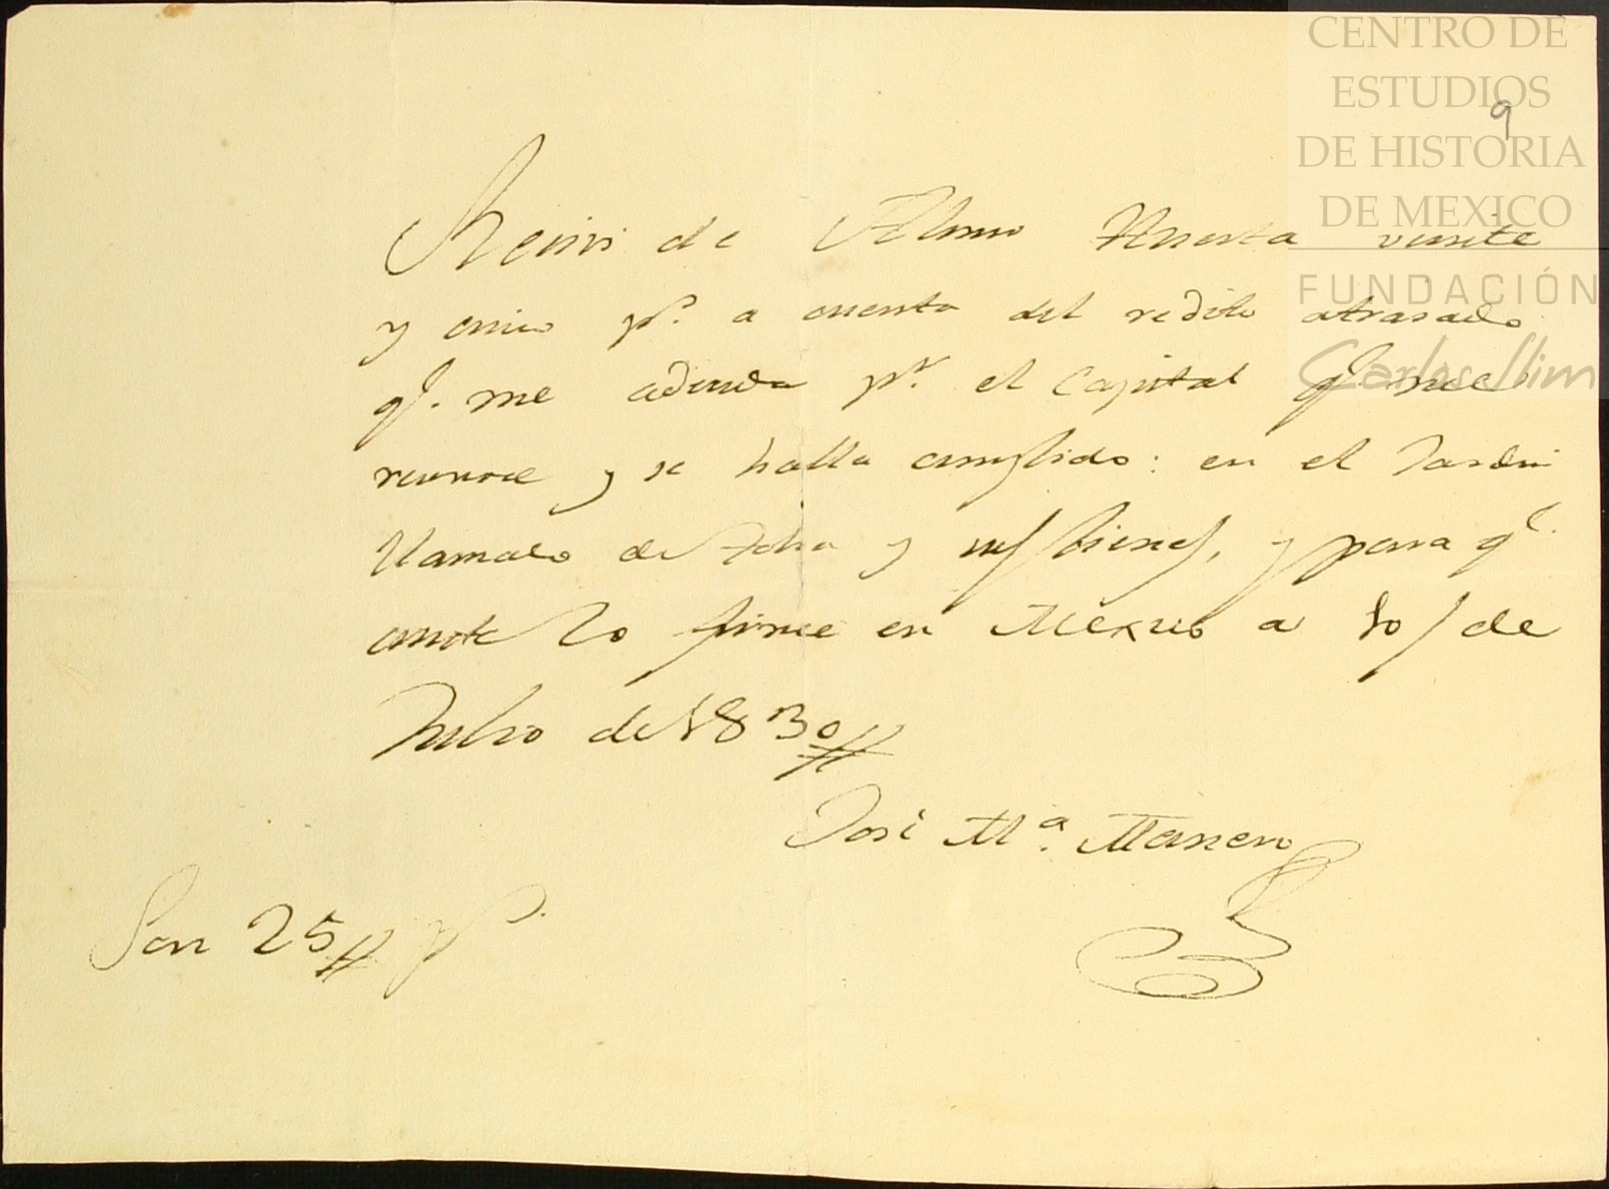 CENTRO DE
ESTUDIOS
DE HISTORIA
DE MEXICO
FUNDACIÓN
Carlos Slim
9
Recivi de Huerta veinte
y cinco ps. a cuenta del redito atrasado
qe. me adeuda pr. el Capital qe. me
reconoce y se halla cumplido: en el Jardin
llamado de y sus bienes, y para qe.
conste lo firme en Mexico a 10 de
Julio de 1830
José Ma. Manero
Son 25 ps.